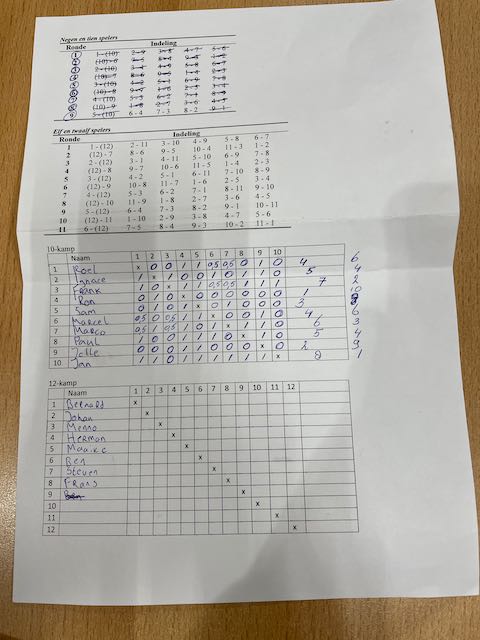 Negen en tien spelers
Ronde Indeling
1 1 - (10) 2 - 9 3 - 8 4 - 7 5 - 6
2 (10) - 6
3 2 - (10)
4 (10) - 7
5 3 - (10)
6 (10) - 8
7 4 - (10)
8 (10) - 9 1 - 8 2 - 7 3 - 6 4 - 5
9 5 - (10) 6 - 4 7 - 3 8 - 2 9 - 1
Elf en twaalf spelers
Ronde Indeling
1 1 - (12) 2 - 11 3 - 10 4 - 9 5 - 8 6 - 7
2 (12) - 7 8 - 6 9 - 5 10 - 4 11 - 3 1 - 2
3 2 - (12) 3 - 1 4 - 11 5 - 10 6 - 9 7 - 8
4 (12) - 8 9 - 7 10 - 6 11 - 5 1 - 4 2 - 3
5 3 - (12) 4 - 2 5 - 1 6 - 11 7 - 10 8 - 9
6 (12) - 9 10 - 8 11 - 7 1 - 6 2 - 5 3 - 4
7 4 - (12) 5 - 3 6 - 2 7 - 1 8 - 11 9 - 10
8 (12) - 10 11 - 9 1 - 8 2 - 7 3 - 6 4 - 5
9 5 - (12) 6 - 4 7 - 3 8 - 2 9 - 1 10 - 11
10 (12) - 11 1 - 10 2 - 9 3 - 8 4 - 7 5 - 6
11 6 - (12) 7 - 5 8 - 4 9 - 3 10 - 2 11 - 1
10-kamp
Naam 1 2 3 4 5 6 7 8 9 10
1 Roel x 0 0 1 1 0,5 0,5 0 1 0 4 6
2 Ignace 1 x 1 0 0 1 0 1 1 0 5 4
3 Frank 1 0 x 1 1 0,5 0,5 1 1 1 7 2
4 Ron 0 1 0 x 0 0 0 0 0 0 1 10
5 Sam 0 1 0 1 x 0 0 1 0 0 3
6 Marcel 0,5 0 0,5 1 1 x 0 0 1 0 4 6
7 Marco 0,5 1 0,5 1 0 1 x 1 1 0 6 3
8 Paul 1 0 0 1 1 1 0 x 1 0 5 4
9 Jelle 0 0 0 1 1 0 0 0 x 0 2 9
10 Jan 1 1 0 1 1 1 1 1 1 x 8 1
12-kamp
Naam 1 2 3 4 5 6 7 8 9 10 11 12
1 Bernard x
2 Johan x
3 Menno x
4 Herman x
5 Maaike x
6 Ben x
7 Steven x
8 Frans x
9 x
10 x
11 x
12 x